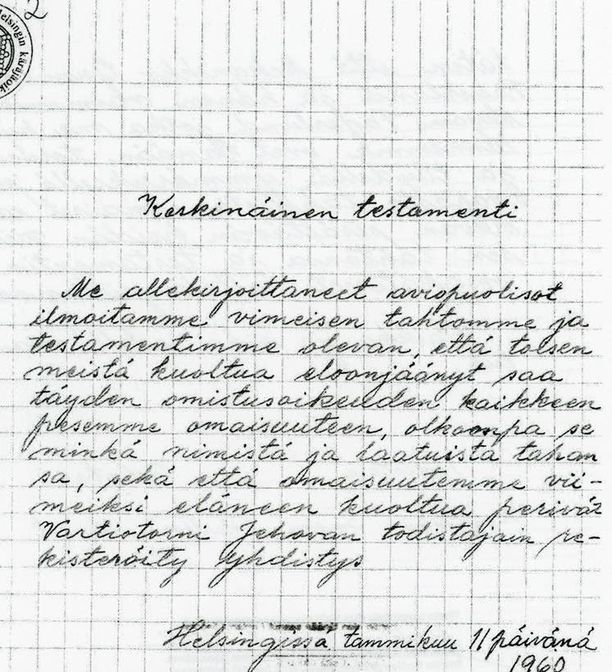 2
Helsingin käräjäoik
Keskinäinen testamenti
Me allekirjoittaneet aviopuolisot
ilmoitamme vimeisen tahtomme ja
testamentimme olevan, että toisen
meistä kuoltua eloonjäänyt saa
täyden omistusoikeuden kaikkeen
pesemme omaisuuteen, olkoonpa se
minkä nimistä ja laatuista tahan
sa, sekä että omaisuutemme vii-
meiksi eläneen kuoltua perivät
Vartiotorni Jehovan todistajain re-
kisteröity yhdistys
Helsingissä tammikuu 11 päivänä
1960